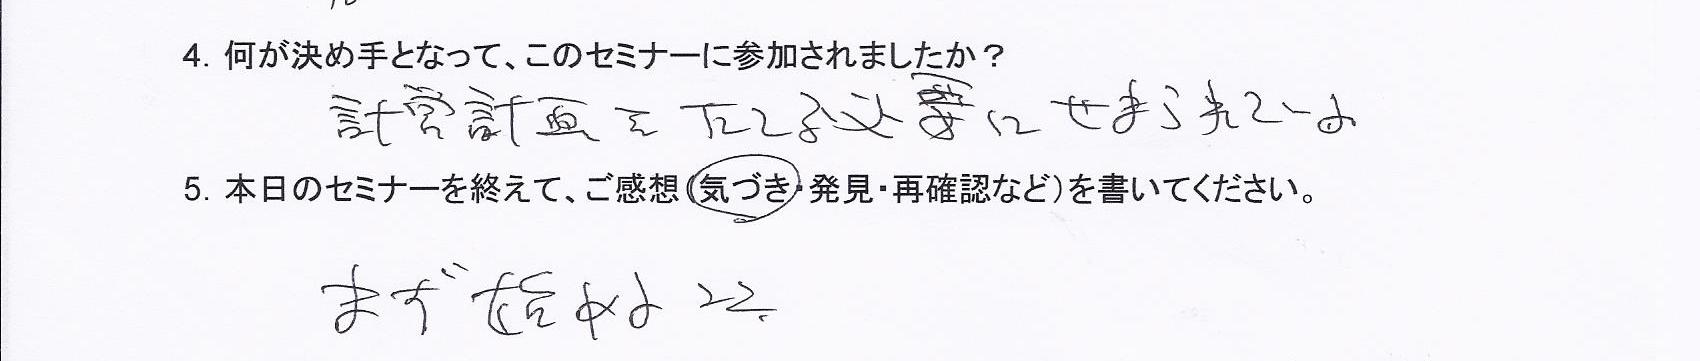 4. 何が決め手となって、このセミナーに参加されましたか？
計営計画をたてる必要にせまられている
5. 本日のセミナーを終えて、ご感想（気づき・発見・再確認など）を書いてください。
まず始める こと.